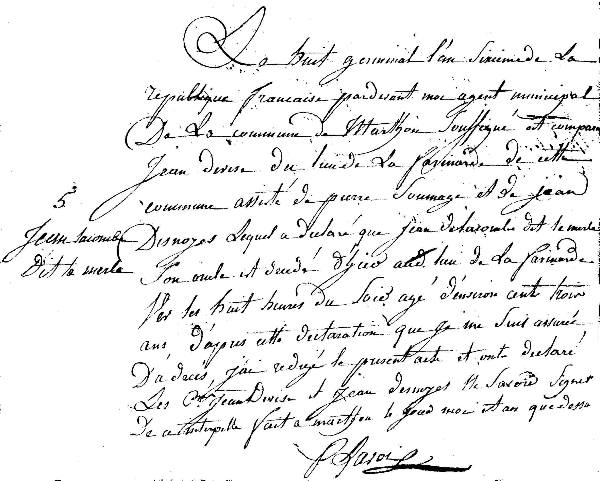 La huit germinal l'an sixieme de La
republique francaise pardevant moi agent municipal
De La commune de Marthon Soussigné est comparu
Jean devise du lieu de La farinarde de cette
commune assisté de pierre Soumage et de jean
5
Jean lacombe
Dit la merle
Desnoyes Lequel a declaré que jean delacombe dit le merle
Son oncle est decedé hier aud. lieu de La farinarde
Vers les huit heures du Soir agé d'environ cent trois
ans D'apres cette declaration que je me suis assuré
Du deces, j'ai redigé le present acte et ont declaré
Les Jean Devise et jean desnoyes Ne Savoir Signer
De ce interpellé fait a marthon le jour mois et an que dessus